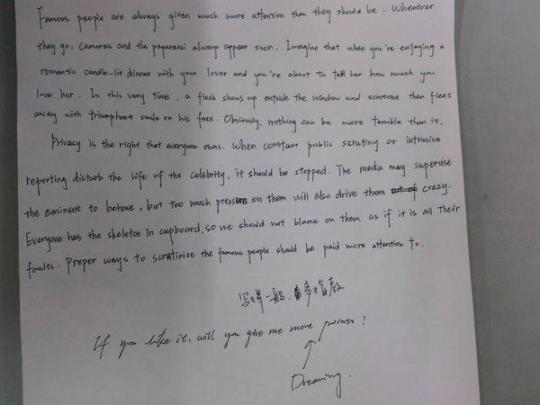 Famous people are always given much more attention than they should be. Whenever
they go, cameras and the paparassi always appear soon. Imagine that when you're enjoying a
romantic candle-lit dinner with your lover and you're about to tell her how much you
love her. In this very time, a flash shows up outside the window and someone then flees
away with triumphant smile on his face. Obviously, nothing can be more terrible than it.
Privacy is the right that everyone owns. When constant public scrutiny or intrusive
reporting disturb the life of the celebrity, it should be stopped. The media may supervise
the eminent to behave, but too much pressure on them will also drive them crazy.
Everyone has the skeleton in cupboard, so we should not blame on them as if it is all their
foules. Proper ways to scrutinize the famous people should be paid more attention to.
写得一般，多多指教
If you like it, will you give me more points?
Dreaming.